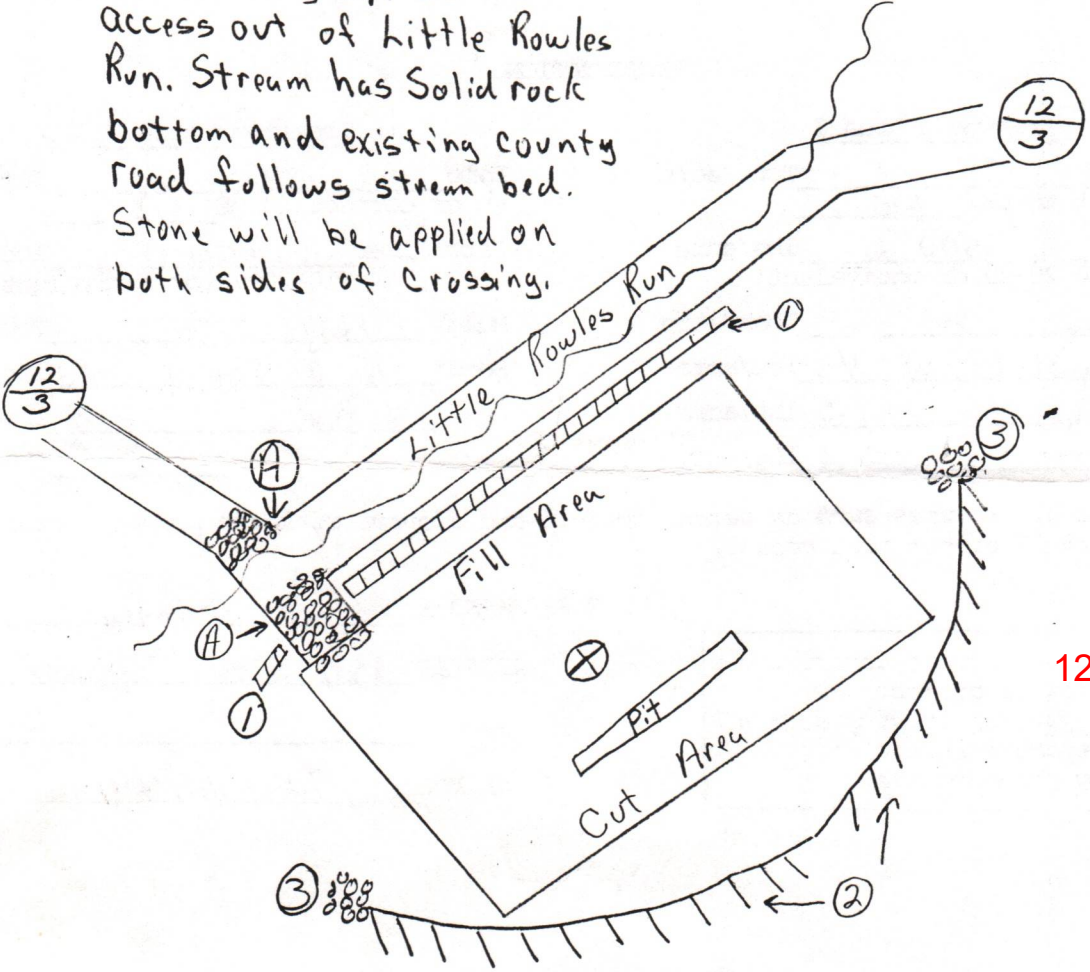 access out of Little Rowles
Run. Stream has Solid rock
bottom and existing county
road follows stream bed.
Stone will be applied on
both sides of Crossing.
12
3
Little Rowles Run
1
12
3
A
3
Fill Area
A
1
12
Pit
Cut Area
3
2